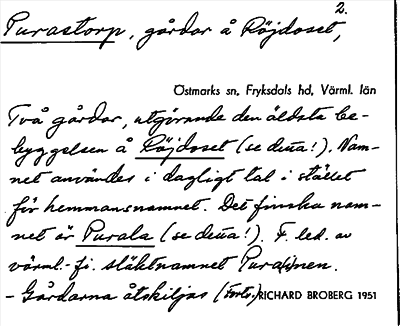 2.
Purastorp, gårdar å Röjdoset,
Östmarks sn, Fryksdals hd, Värml. län
Två gårdar, utgörande den äldsta be-
byggelsen å Röjdoset (se detta!). Nam-
net användes i dagligt tal i stället
för hemmansnamnet. Det finska nam-
net är Purala (se detta!). F. led. av
värml.-fi. släktnamnet Pura(i)nen.
- Gårdarna åtskiljas (forts.) RICHARD BROBERG 1951